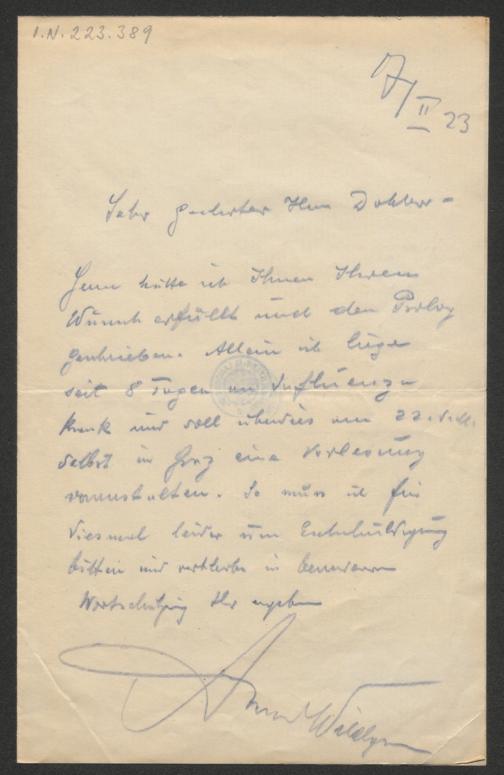 I.N. 223.389
7/II 23
Sehr geehrter Herr Doktor –
Gern hätte ich Ihnen Ihren
Wunsch erfüllt und den Prolog
geschrieben. Allein ich liege
seit 8 Tagen an Influenza
krank und soll überdies am 22. d. M.
selbst in Graz eine Vorlesung
veranstalten. So muss ich für
diesmal leider um Entschuldigung
bitten und verbleibe in besonderer
Wertschätzung Ihr ergeben
Anton Wildgans